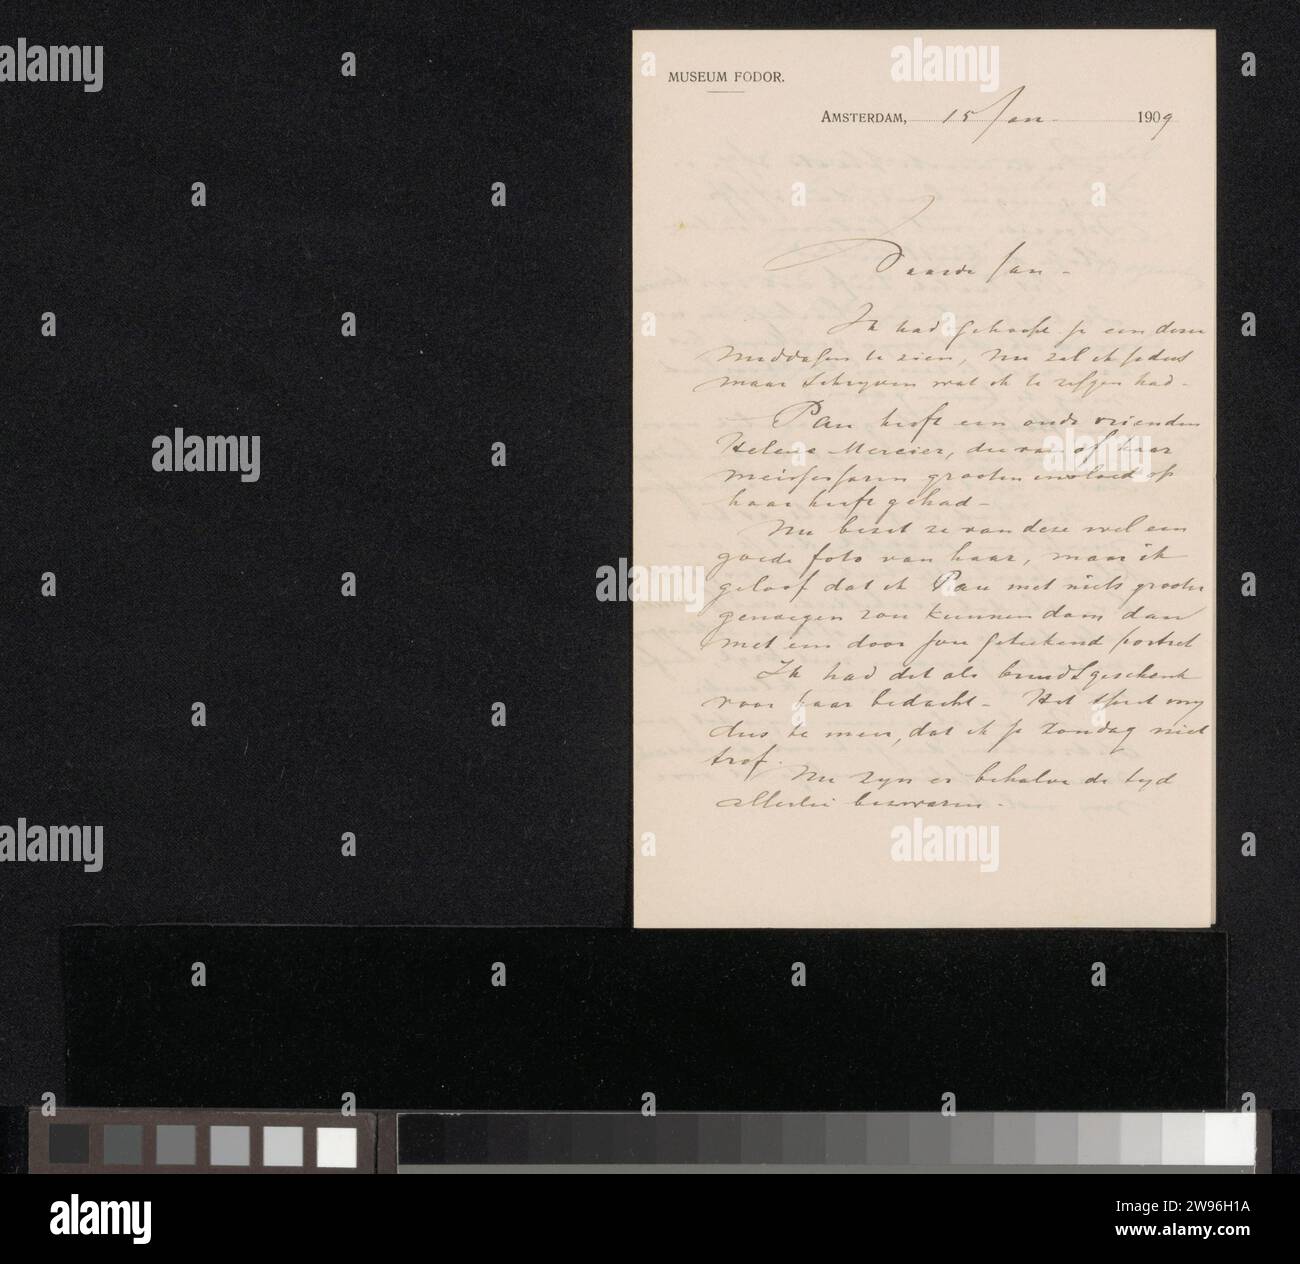 MUSEUM FODOR.
AMSTERDAM, 15 Jan 1909
Waarde Jan -
Ik had gehoopt je een dezer
middagen te zien, nu zal ik je dus
maar schrijven wat ik te zeggen had -
Pau heeft een oude vriendin
Helene Mercier, die van af haar
meisjesjaren grooten invloed op
haar heeft gehad -
Nu bezit ze van deze wel een
goede foto van haar, maar ik
geloof dat ik Pau met niets grooter
genoegen zou kunnen doen dan
met een door jou geteekend portret
Ik had dit als bruidsgeschenk
voor haar bedacht - Het spijt mij
dus te meer, dat ik je Zondag niet
trof.
Nu zijn er behalve de tijd
allerlei bezwaren -
alamy
www.alamy.com
2W96H1A